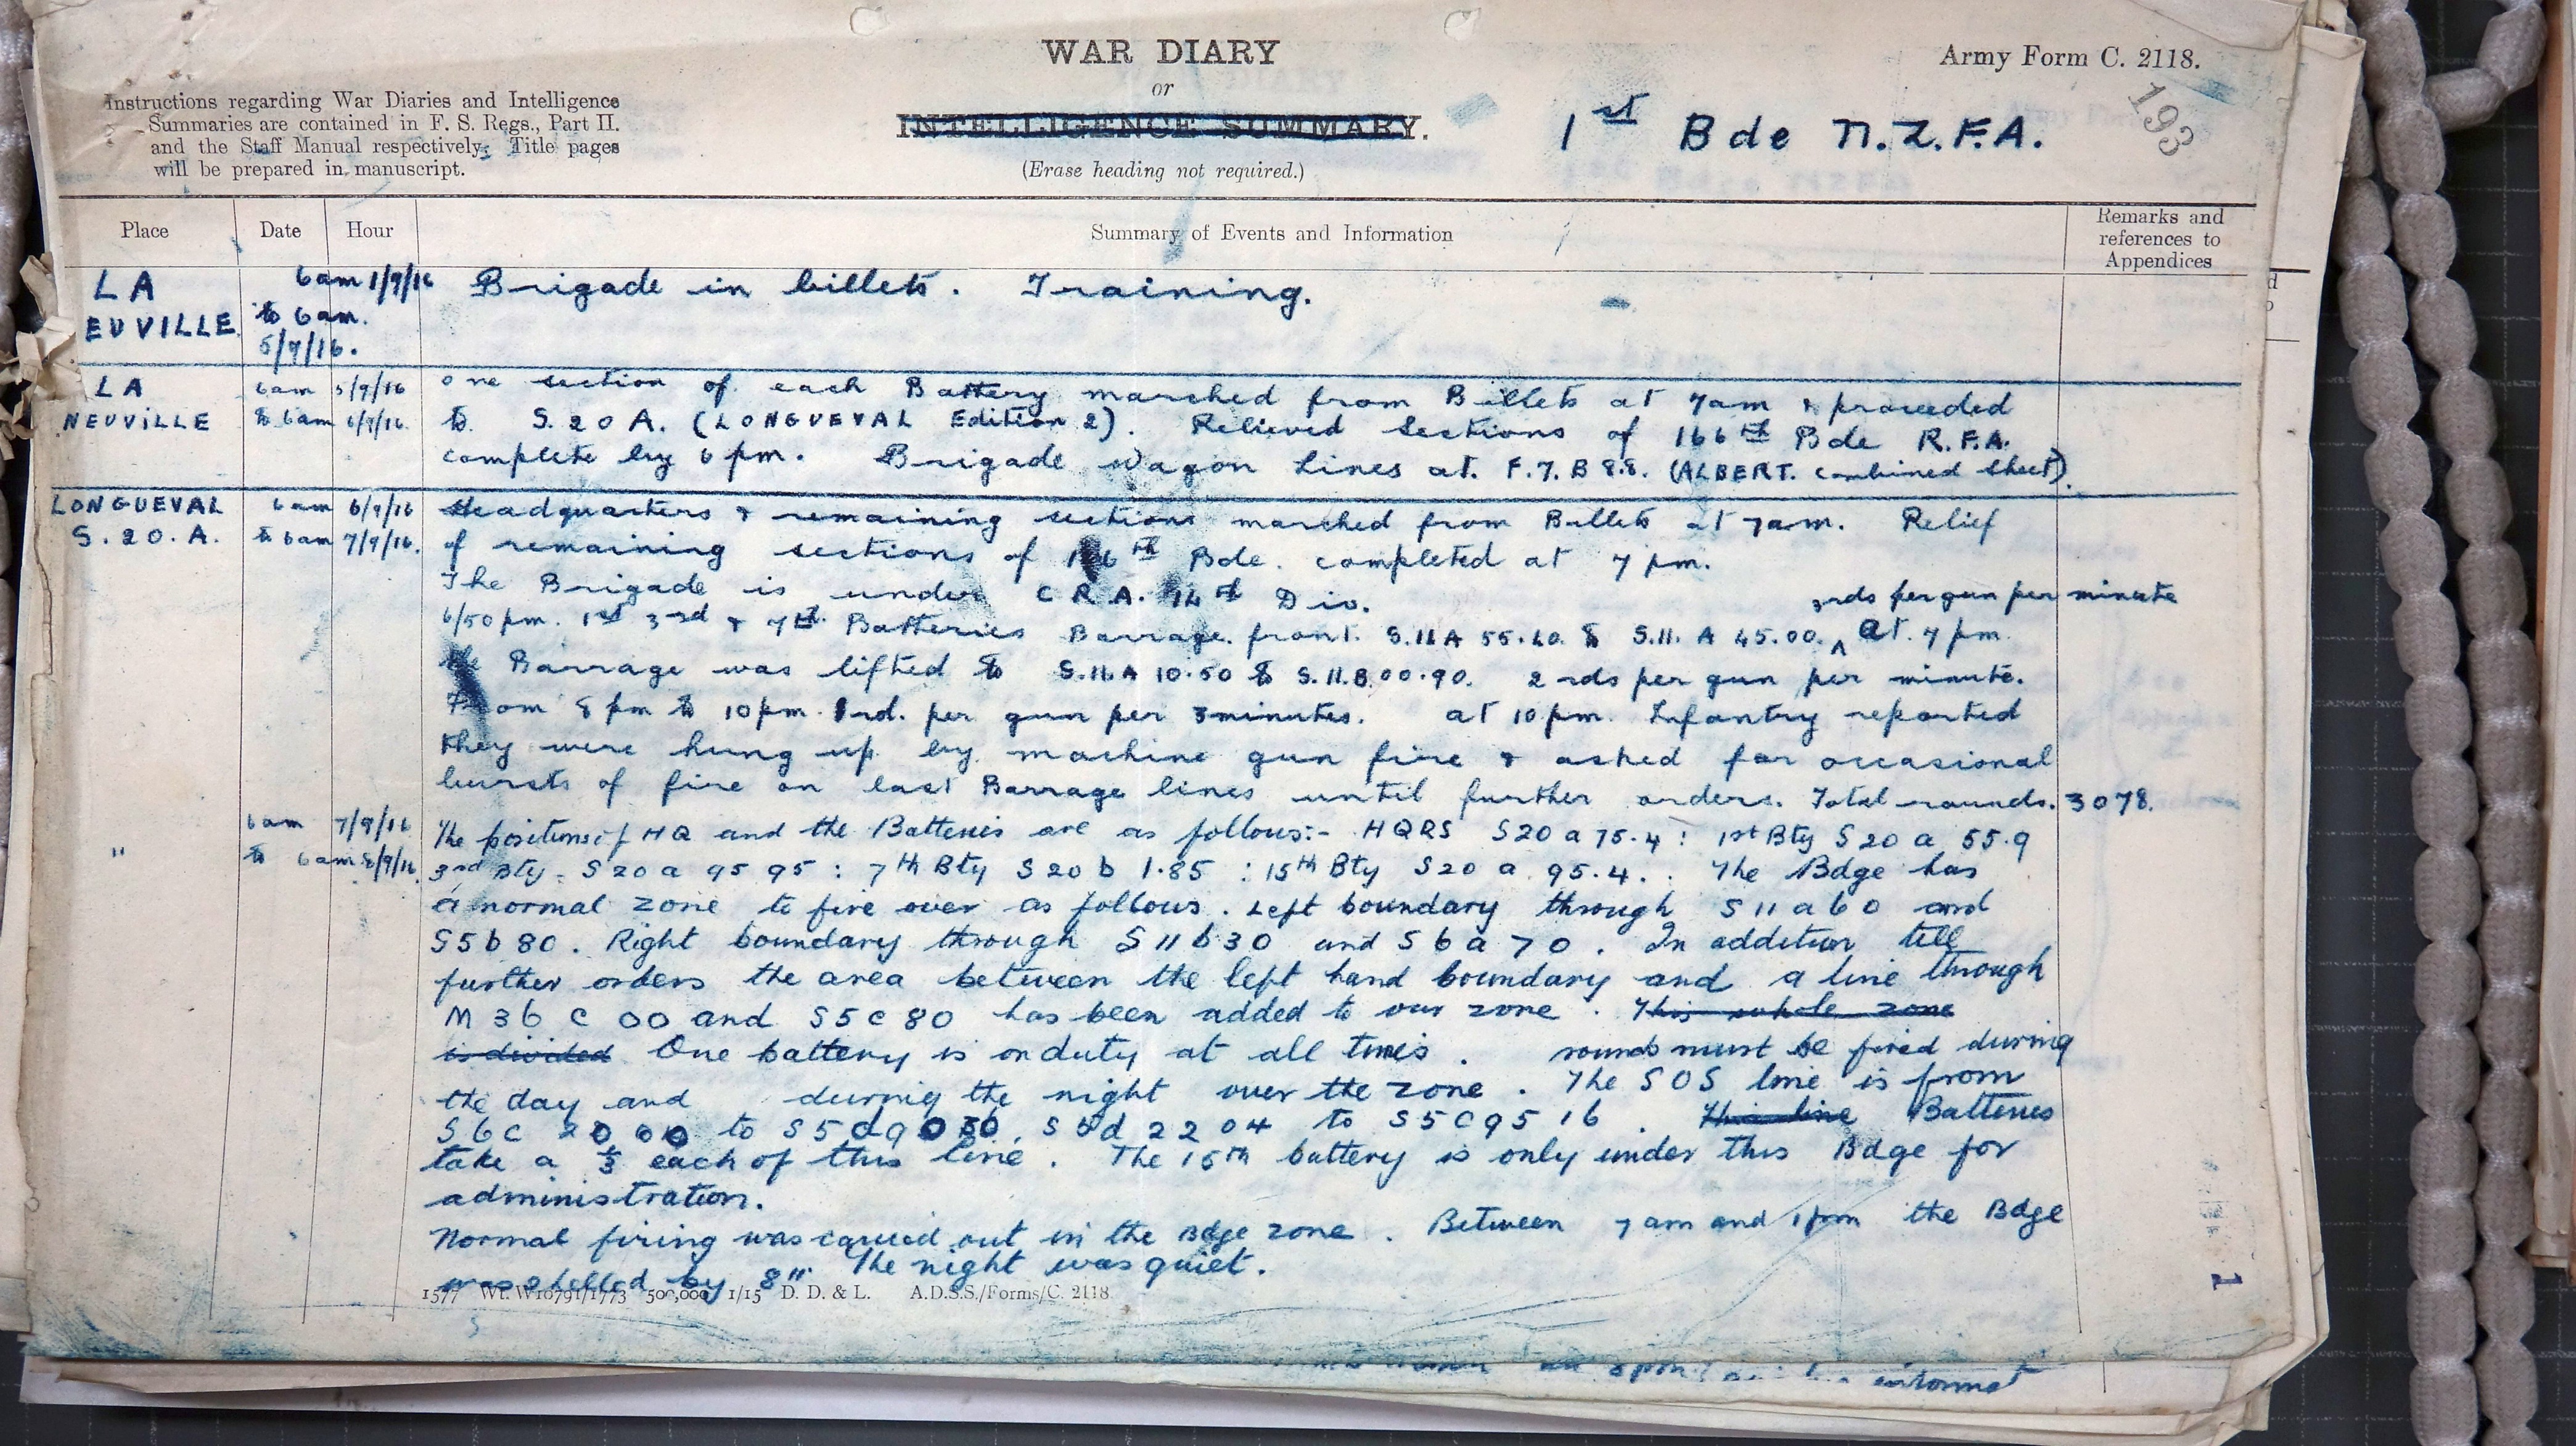 WAR DIARY
or
INTELLIGENCE SUMMARY.
(Erase heading not required.)
Army Form C. 2118.
193
Instructions regarding War Diaries and Intelligence
Summaries are contained in F. S. Regs., Part II.
and the Staff Manual respectively. Title pages
will be prepared in manuscript.
1st Bde N.Z.F.A.
Place Date Hour Summary of Events and Information Remarks and
references to
Appendices
LA 6am 1/9/16 Brigade in billets. Training.
EUVILLE to 6am.
5/9/16.
LA 6am 5/9/16 One section of each Battery marched from Billets at 7am & proceeded
NEUVILLE to 6am 6/9/16 to S.20A. (LONGUEVAL Edition 2). Relieved sections of 166th Bde R.F.A.
complete by 6pm. Brigade Wagon Lines at. F.7.B 8.8. (ALBERT. combined sheet).
LONGUEVAL 6am 6/9/16 Headquarters & remaining sections marched from Billets at 7am. Relief
S.20.A. to 6am 7/9/16. of remaining sections of 166th Bde. completed at 7pm.
The Brigade is under C R A. 14th Div.
3rds per gun per minute
6/50pm. 1st 3rd & 7th Batteries Barrage. front. S.11A 55.60. to S.11. A 45.00. ^ At. 7pm.
the Barrage was lifted to S.11.A 10.50 to S.11.B.00.90. 2 rds per gun per minute.
From 8pm to 10pm. 1rd. per gun per 3minutes. at 10pm. Infantry reported
they were hung up by machine gun fire & asked for occasional
bursts of fire on last Barrage lines until further orders. Total rounds. 3078.
6am 7/9/16 The positions of HQ and the Batteries are as follows:- HQRS S20 a 75.4 : 1st Bty S20 a 55.9
" to 6am 8/9/16. 3rd Bty. S20a 95 95 : 7th Bty S20 b 1.85 : 15th Bty S20 a 95.4. . The Bdge has
a normal zone to fire over as follows. Left boundary through S11a60 and
S5b80. Right boundary through S11b30 and S6a70. In addition till
further orders the area between the left hand boundary and a line through
M36 c 00 and S5c80 has been added to our zone. This whole zone
is divided One battery is on duty at all times. rounds must be fired during
the day and during the night over the zone. The SOS line is from
S6c to S5d S d 22 04 to S5C95 16. This line Batteries
take a 1/3 each of this line. The 15th battery is only under this Bdge for
administration.
Normal firing was carried out in the Bdge zone. Between 7am and 1pm the Bdge
was shelled by 8". The night was quiet.
1577 Wt. W10791/1773 500,000 1/15 D. D. & L. A.D.S.S./Forms/C. 2118.
1